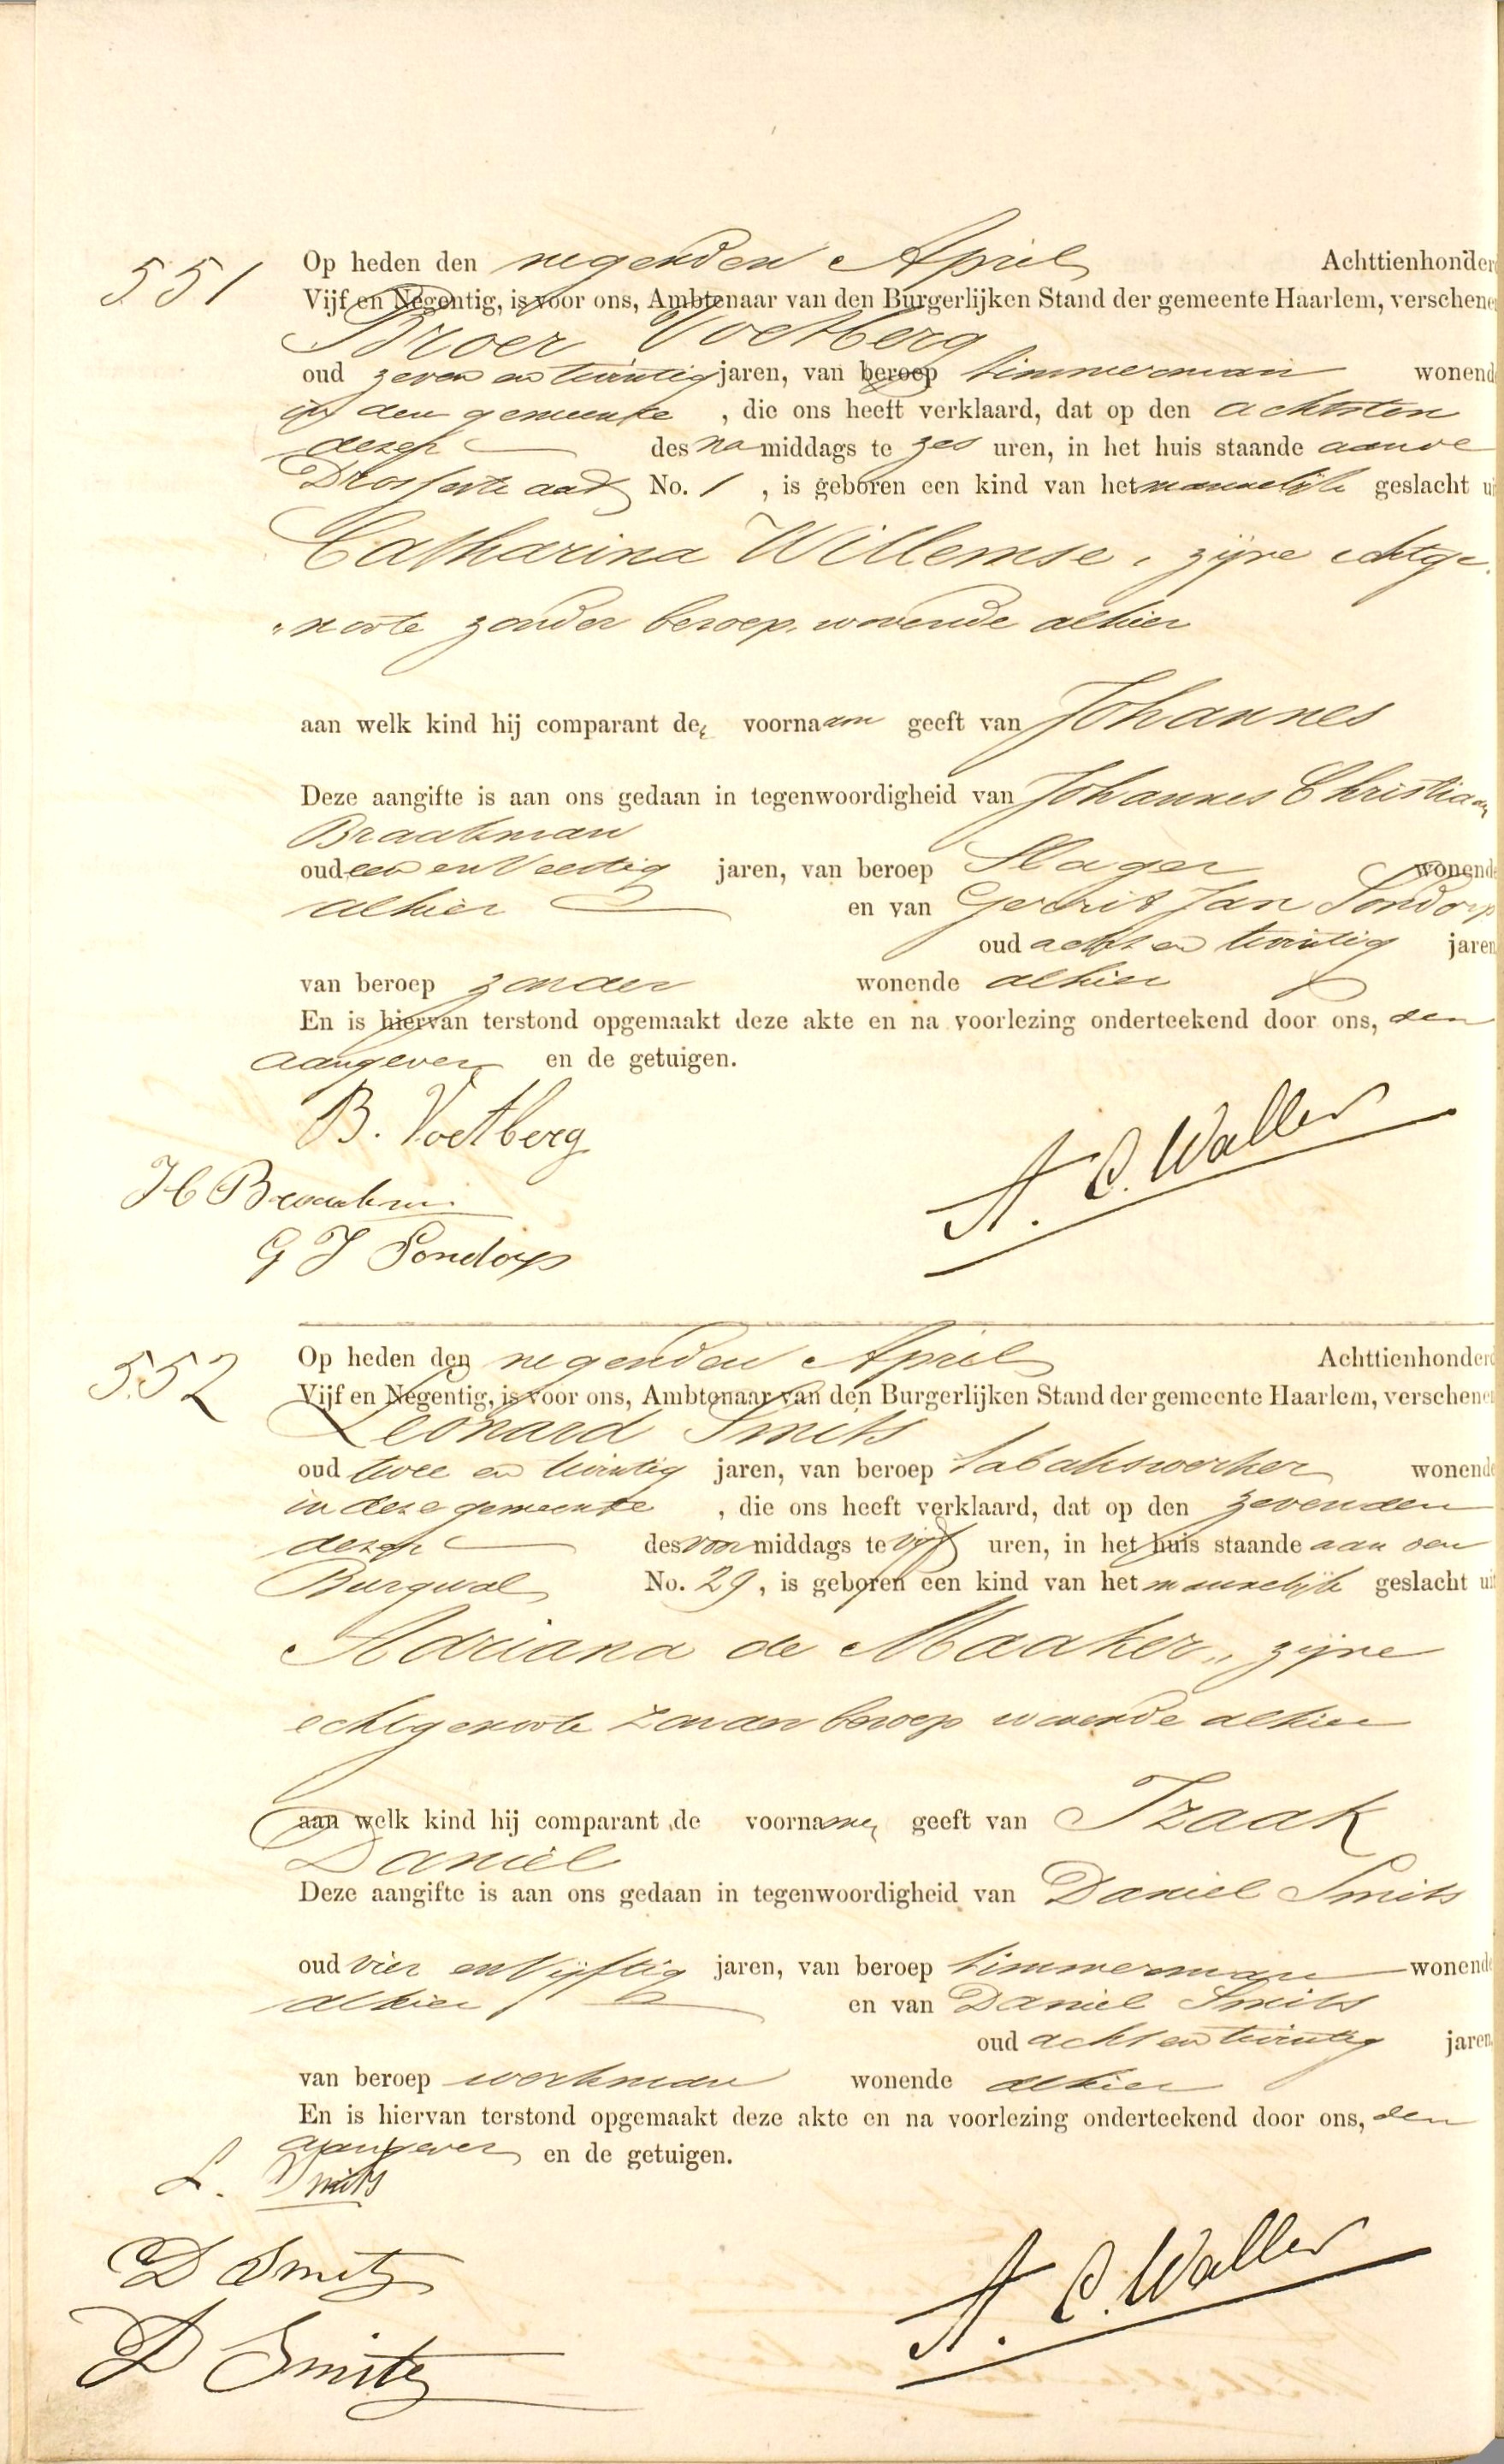 551
Op heden den negenden April Achttienhonderd
Vijf en Negentig, is voor ons, Ambtenaar van den Burgerlijken Stand der gemeente Haarlem, verschenen
Broer Voetberg
oud zeven en twintig jaren, van beroep timmerman wonend
gemeente , die ons heeft verklaard, dat op den achtsten
dezer des namiddags te zes uren, in het huis staande aan de
No. 1 , is geboren een kind van het mannelijk geslacht ui
Catharina Willemse, zijne echtge
"noote zonder beroep, wonende alhier
aan welk kind hij comparant den voornaam geeft van Johannes
Deze aangifte is aan ons gedaan in tegenwoordigheid van Johannes Christiaan
Braakman
oud een en Veertig jaren, van beroep Slager wonende
alhier en van Gerrit Jan Sondorp
oud acht en twintig jaren
van beroep zonder wonende alhier
En is hiervan terstond opgemaakt deze akte en na voorlezing onderteekend door ons, den
aangever en de getuigen.
B. Voetberg
A. C. Waller
J C Braakman
G J Sondorp
552
Op heden den negenden April Achttienhonderd
Vijf en Negentig, is voor ons, Ambtenaar van den Burgerlijken Stand der gemeente Haarlem, verschenen
Leonard Smits
oud twee en twintig jaren, van beroep tabakswerker wonende
in deze gemeente , die ons heeft verklaard, dat op den zevenden
dezer des voormiddags te vijf uren, in het huis staande aan den
Burgwal No. 29, is geboren een kind van het mannelijk geslacht ui
Adriana de Maaker, zijne
echtgenoote zonder beroep wonende alhier
aan welk kind hij comparant de voornamen geeft van Izaak
Daniel
Deze aangifte is aan ons gedaan in tegenwoordigheid van Daniel Smits
oud vier en Vijftig jaren, van beroep timmerman wonende
alhier en van Daniel Smits
oud acht en twintig jaren
van beroep werkman wonende alhier
En is hiervan terstond opgemaakt deze akte en na voorlezing onderteekend door ons, den
aangever en de getuigen.
L. Smits
D Smitz
A. C. Waller
D Smitz